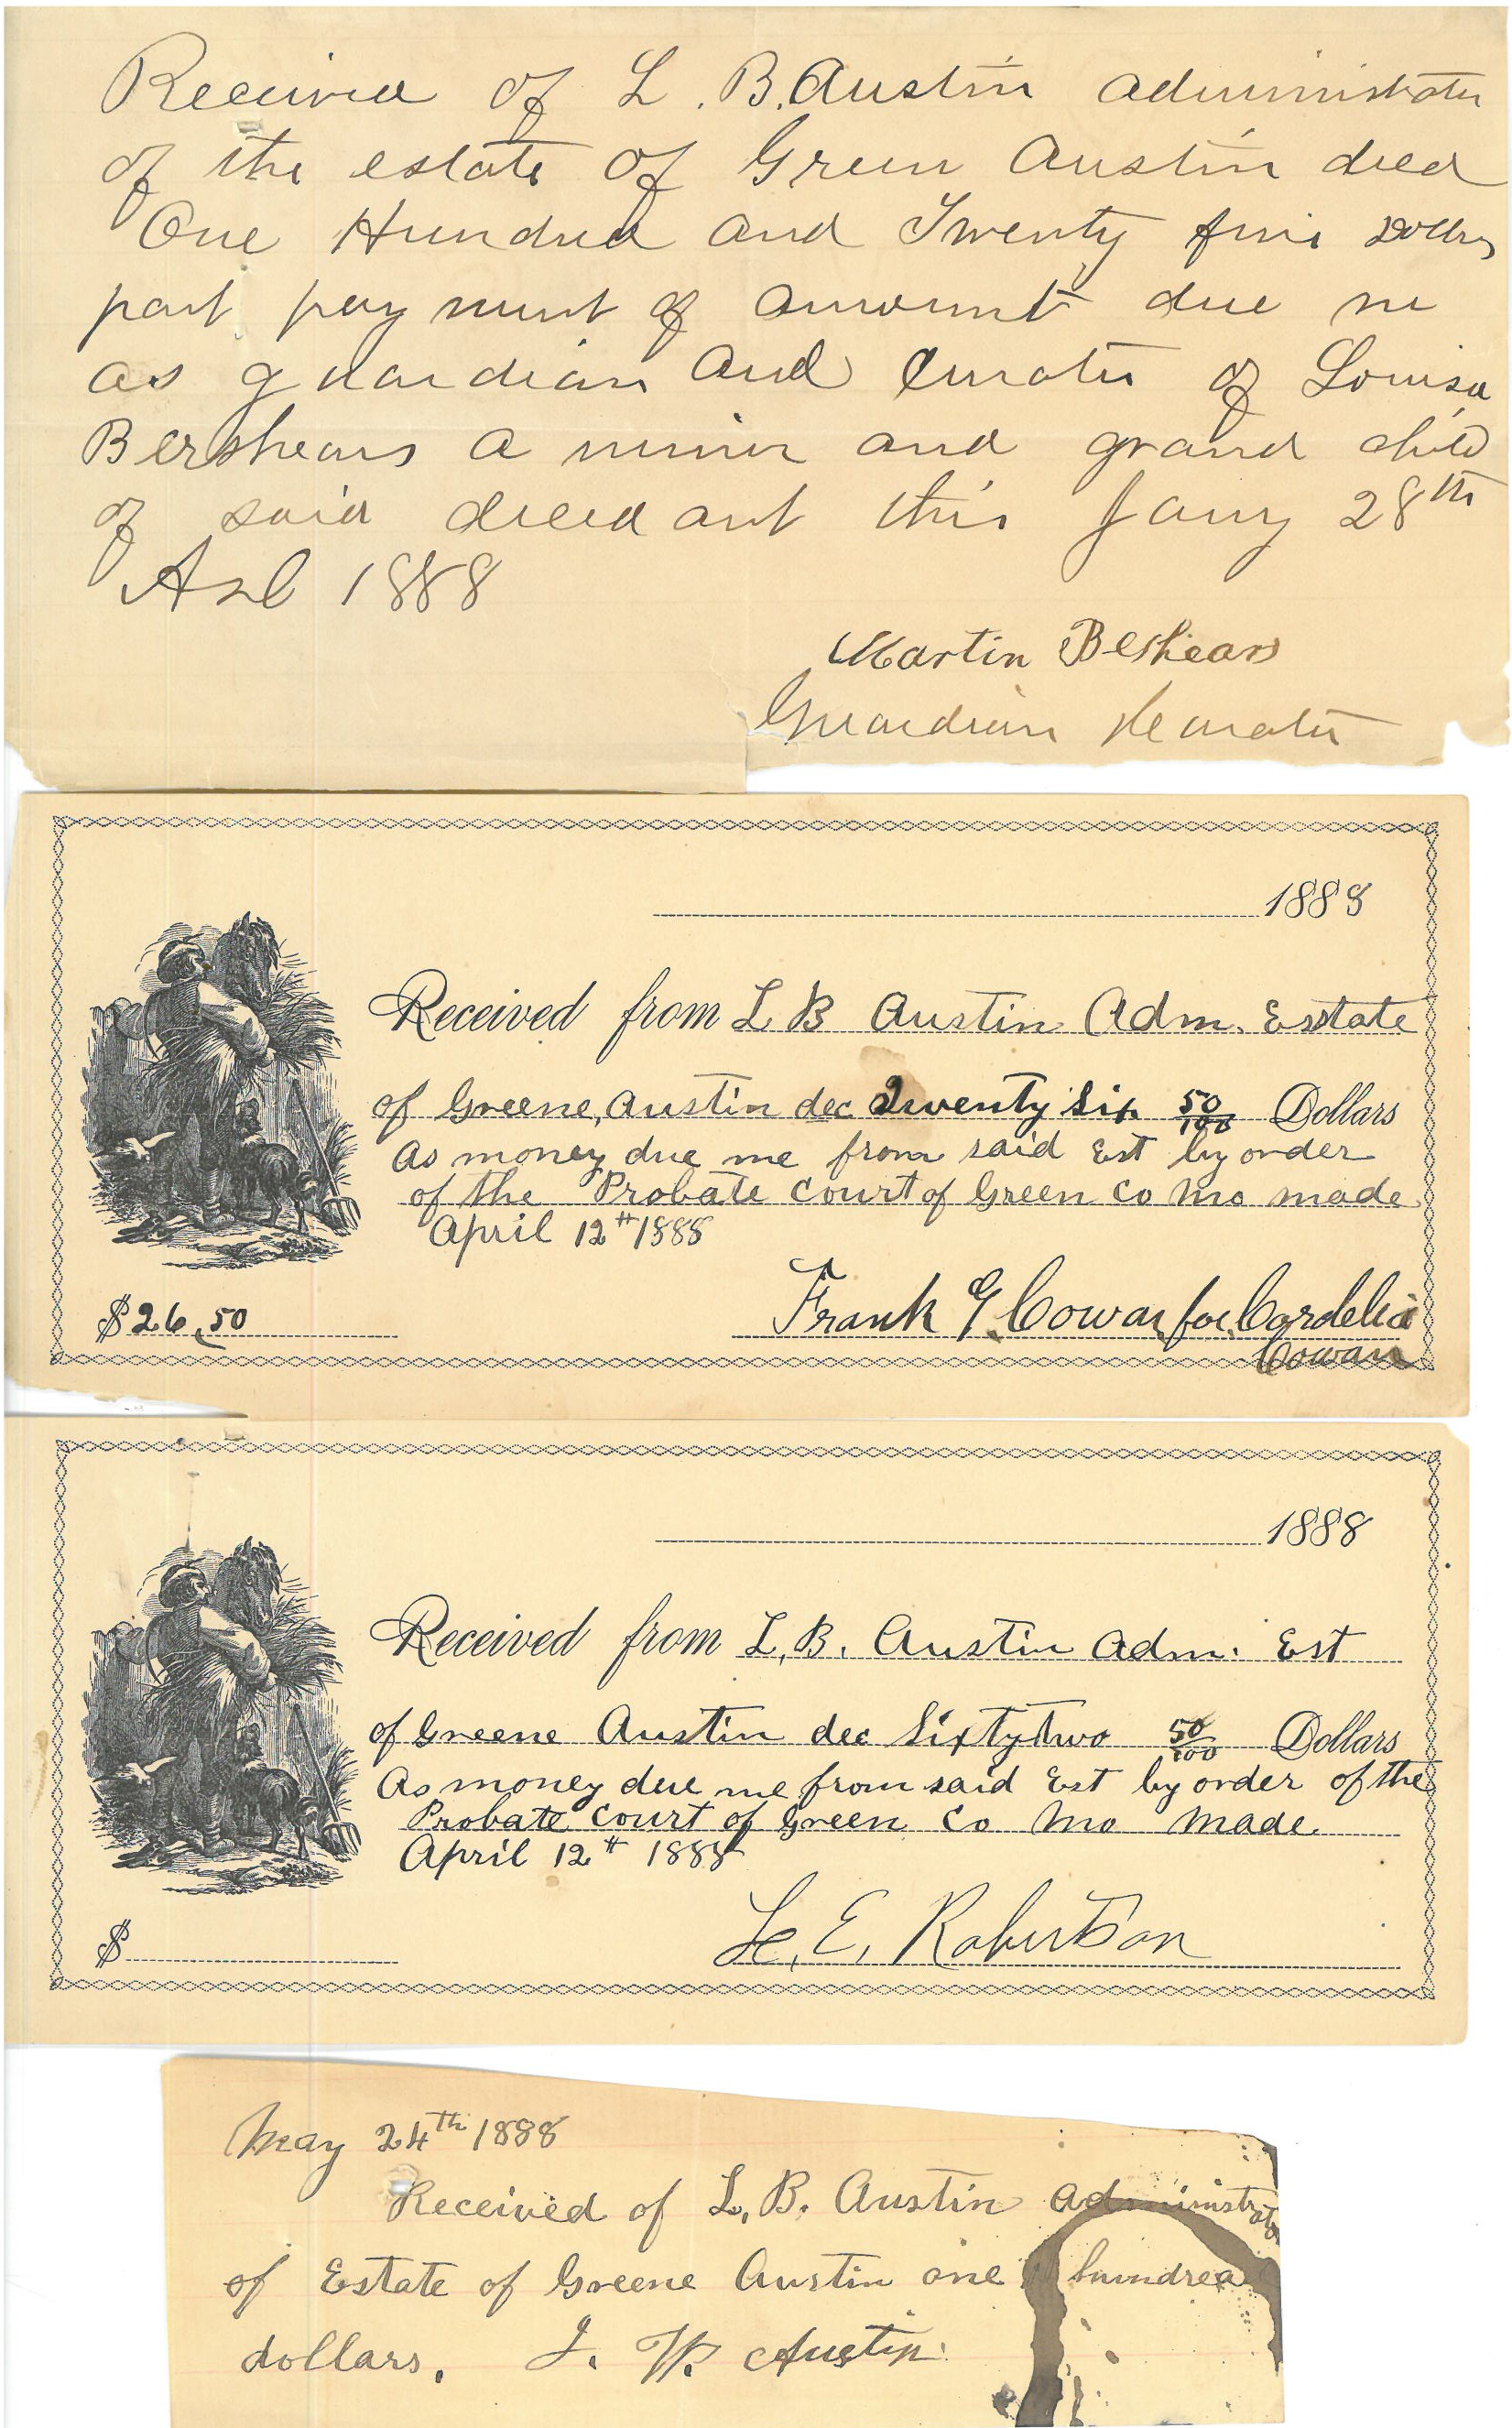 Received of L. B. Austin administrator
of the estate of Green Austin decd
One Hundred and Twenty five Dollars
part payment of amount due me
as guardian and Curator of Louisa
Bershears a minor and grand child
of said decedant this Jany 28th
AD 1888
Martin Beshears
Guardian & Curator
1888
Received from L B Austin Adm. Esstate
of Greene, Austin dec Twenty Six 50/100 Dollars
As money due me from said Est by order
of the Probate Court of Green Co Mo made
April 12th 1888
$26.50
Frank G. Cowan for Cordelia
Cowan
1888
Received from L. B. Austin Adm. Est
of Greene Austin dec Sixty two 50/100 Dollars
As money due me from said Est by order of the
Probate Court of Green Co Mo Made
April 12th 1888
$
E. Robertson
May 24th 1888
Received of L. B. Austin administrator
of Estate of Greene Austin one hundred
dollars. J. W. Austin.